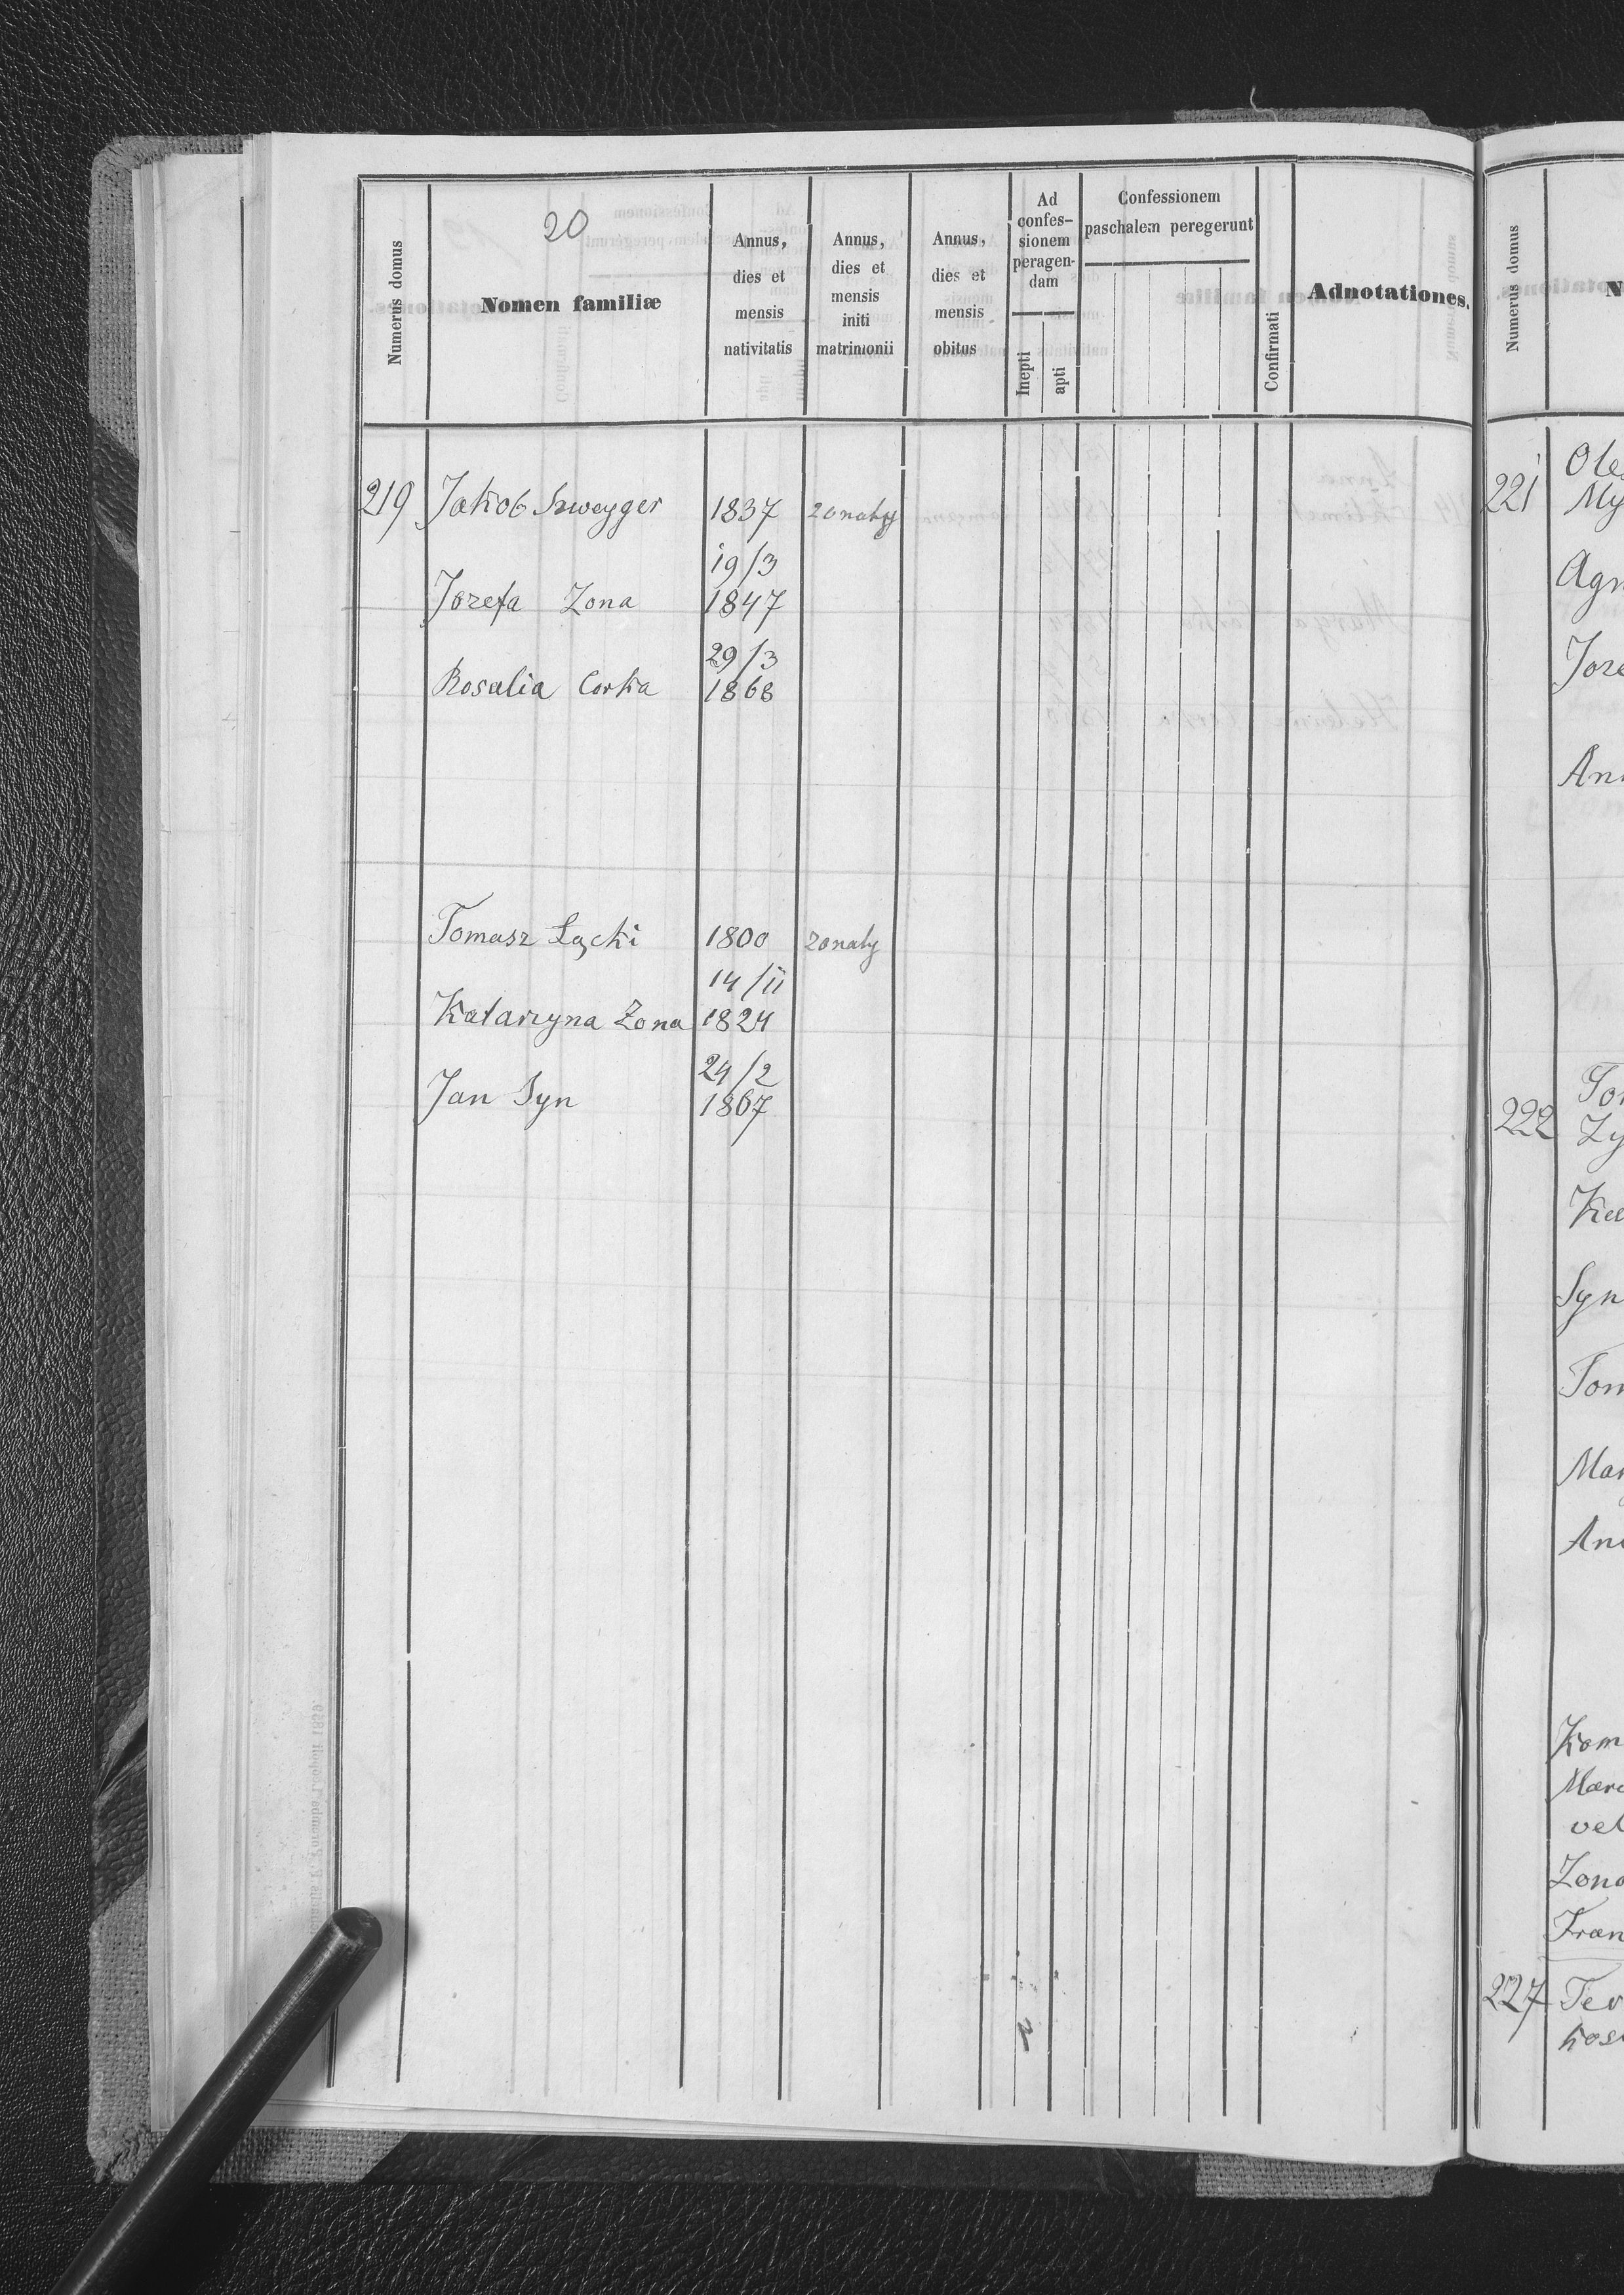 20
Numerus domus
Nomen familiæ
Annus,
dies et
mensis
nativitatis
Annus,
dies et
mensis
initi
matrimonii
Annus,
dies et
mensis
obitus
Ad
confes-
sionem
peragen-
dam
Inepti
apti
Confessionem
paschalem peregerunt
Confirmati
Adnotationes.
219 Jakob Szweyger 1837 zonaty
19/3
Jozefa Zona 1847
29/3
Rosalia Corka 1868
Tomasz Łącki 1800 zonaty
14/11
Katarzyna Zona 1824
24/2
Jan Syn 1867
Numerus domus
N
Ole
221 My
Agn
Joze
An
222
Zy
Syn
Tom
Mar
An
Kom
Marc
vel
Zona
Fran
227